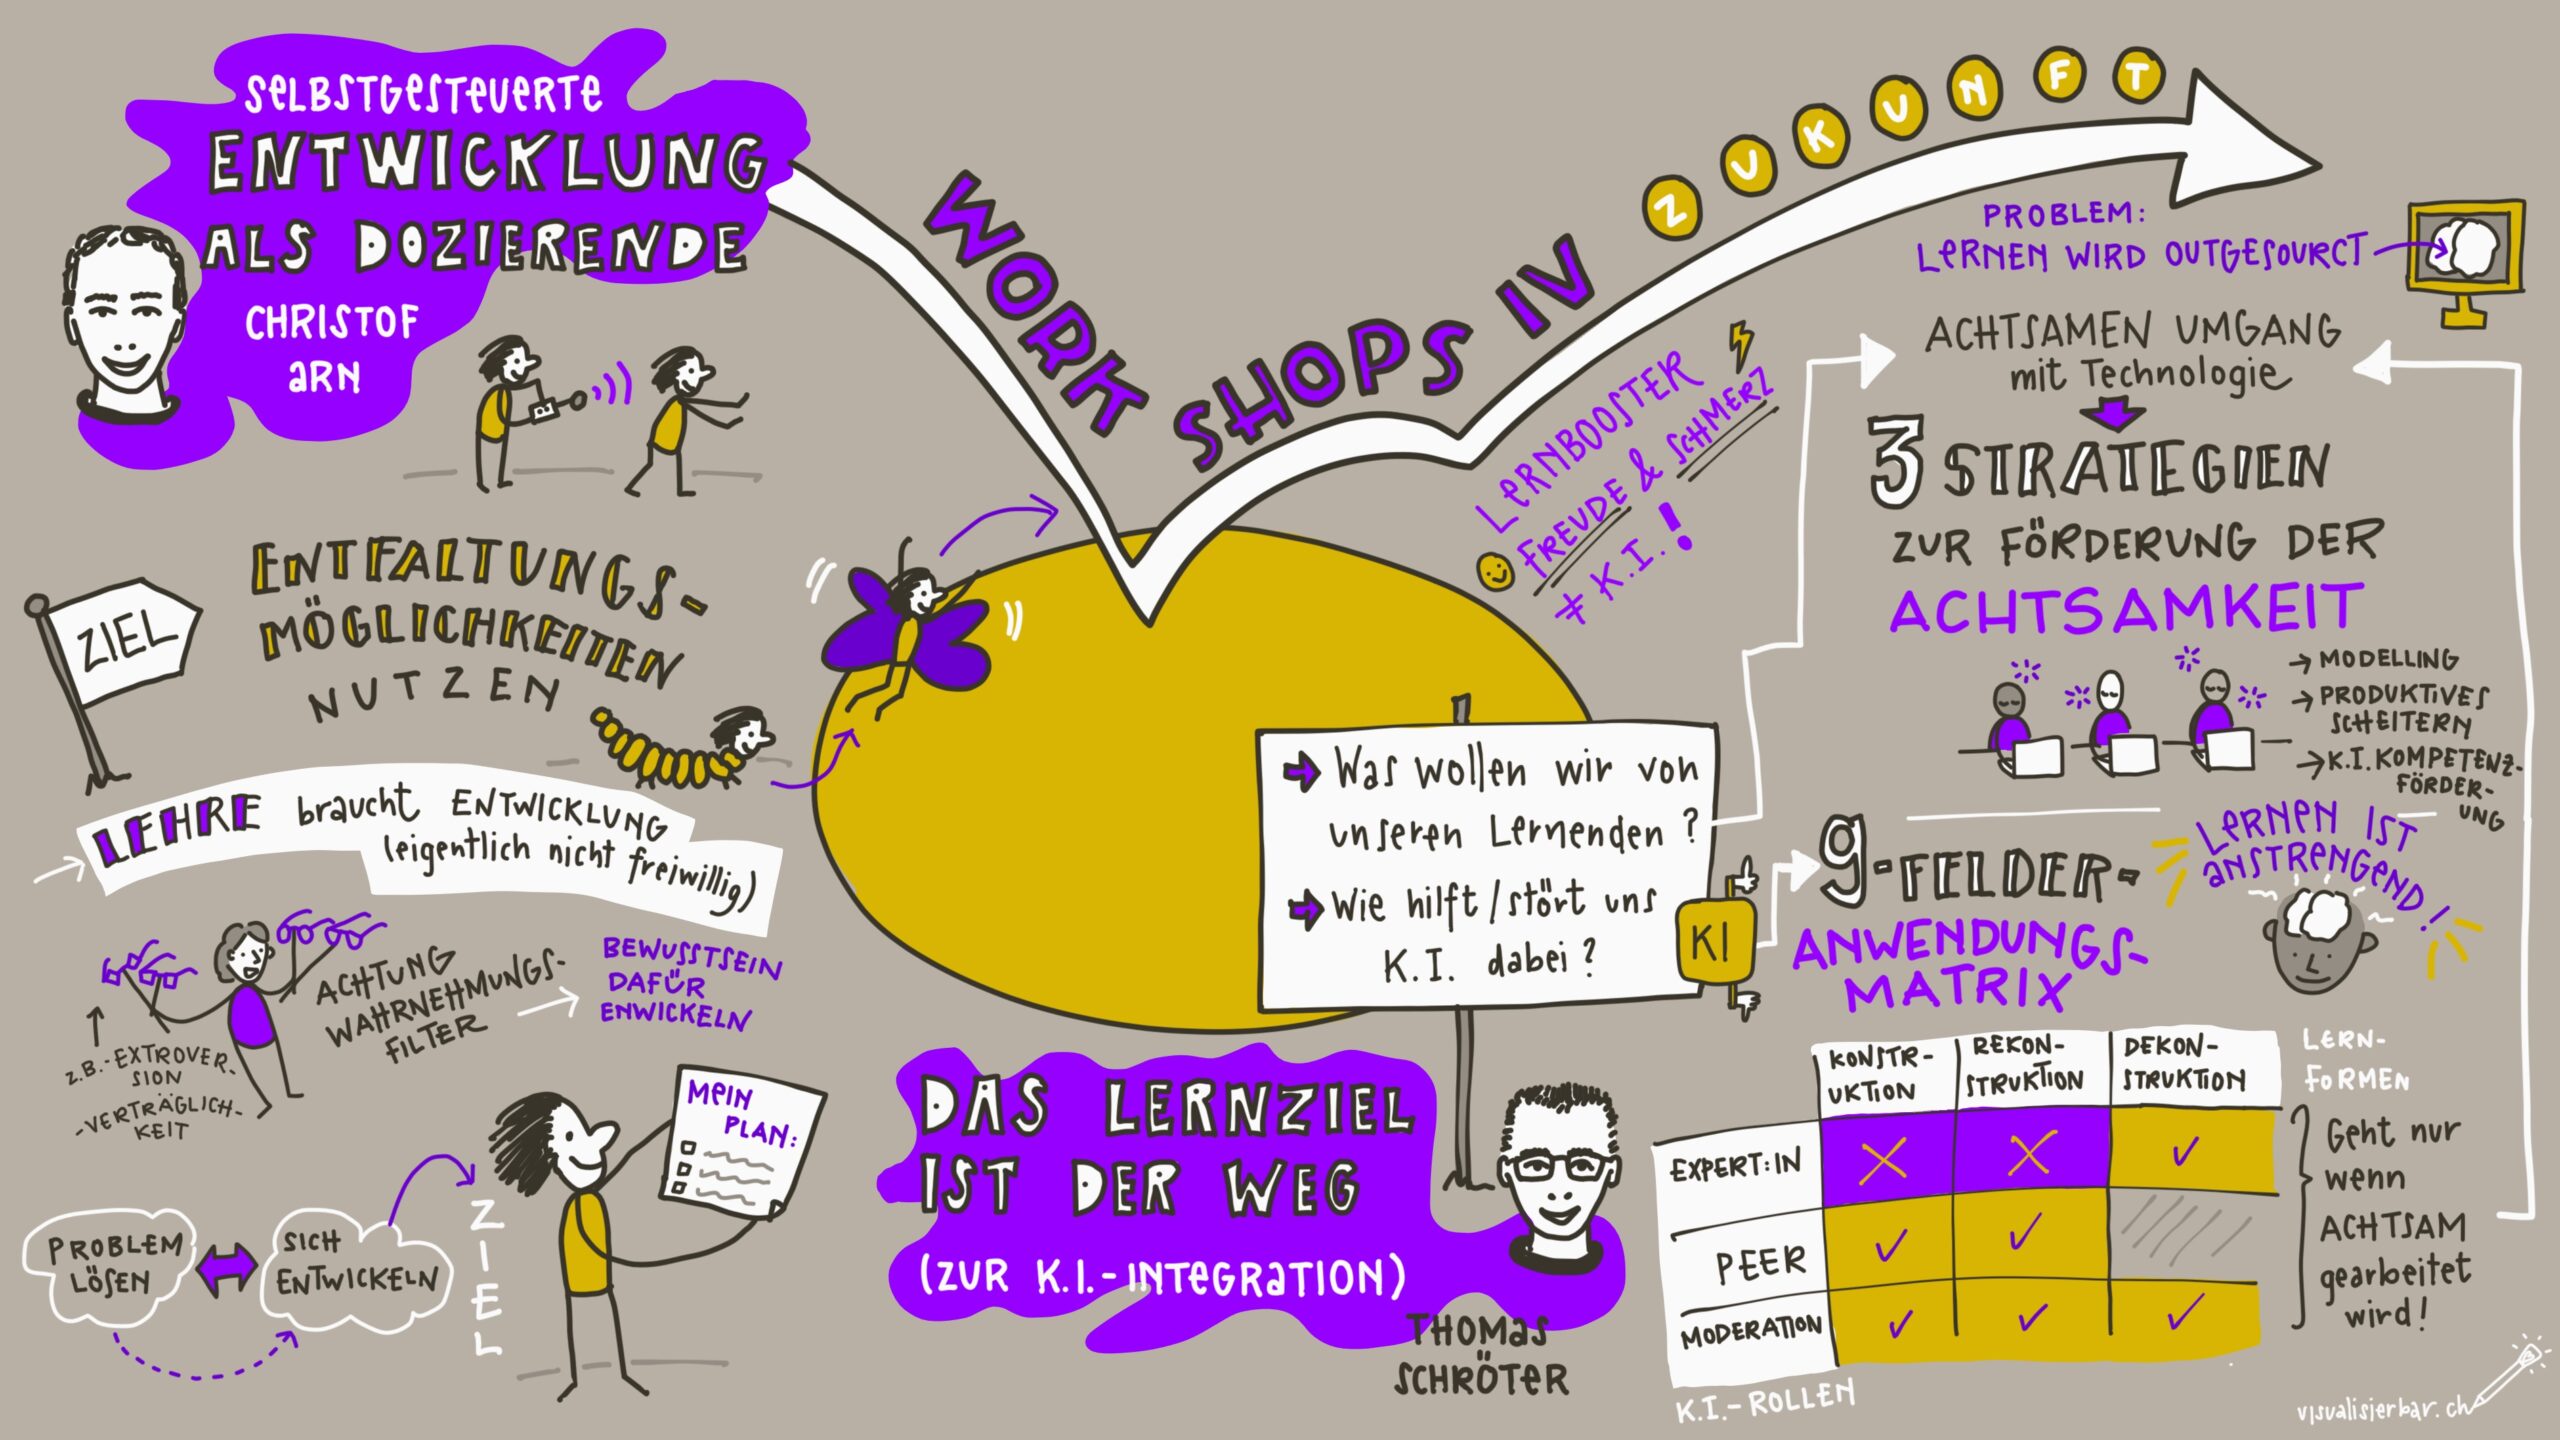 SELBSTGESTEUERTE
ENTWICKLUNG
ALS DOZIERENDE
CHRISTOF
ARN
ZIEL
ENTFALTUNGS-
MÖGLICHKEITEN
NUTZEN
LEHRE braucht ENTWICKLUNG
(eigentlich nicht freiwillig)
ACHTUNG
WAHRNEHMUNGS-
FILTER
BEWUSSTSEIN
DAFÜR
ENWICKELN
z.B.-EXTROVER-
SION
-VERTRÄGLICH-
KEIT
PROBLEM
LÖSEN
SICH
ENTWICKELN
ZIEL
MEIN
PLAN:
WORK
SHOPS IV
ZUKUNFT
LERNBOOSTER
FREUDE & SCHMERZ
* K.I.!
Was wollen wir von
unseren Lernenden?
Wie hilft/stört uns
K.I. dabei?
KI
DAS LERNZIEL
IST DER WEG
(ZUR K.I.-INTEGRATION)
THOMAS
SCHRÖTER
PROBLEM:
LERNEN WIRD OUTGESOURCT
ACHTSAMEN UMGANG
mit Technologie
3 STRATEGIEN
ZUR FÖRDERUNG DER
ACHTSAMKEIT
→ MODELLING
→ PRODUKTIVES
SCHEITERN
→ K.I. KOMPETENZ-
FÖRDER-
UNG
9-FELDER-
ANWENDUNGS-
MATRIX
LERNEN IST
ANSTRENGEND!
KONSTR-
UKTION
REKON-
STRUKTION
DEKON-
STRUKTION
LERN-
FORMEN
EXPERT:IN
PEER
MODERATION
K.I.-ROLLEN
Geht nur
wenn
ACHTSAM
gearbeitet
wird!
visualisierbar.ch